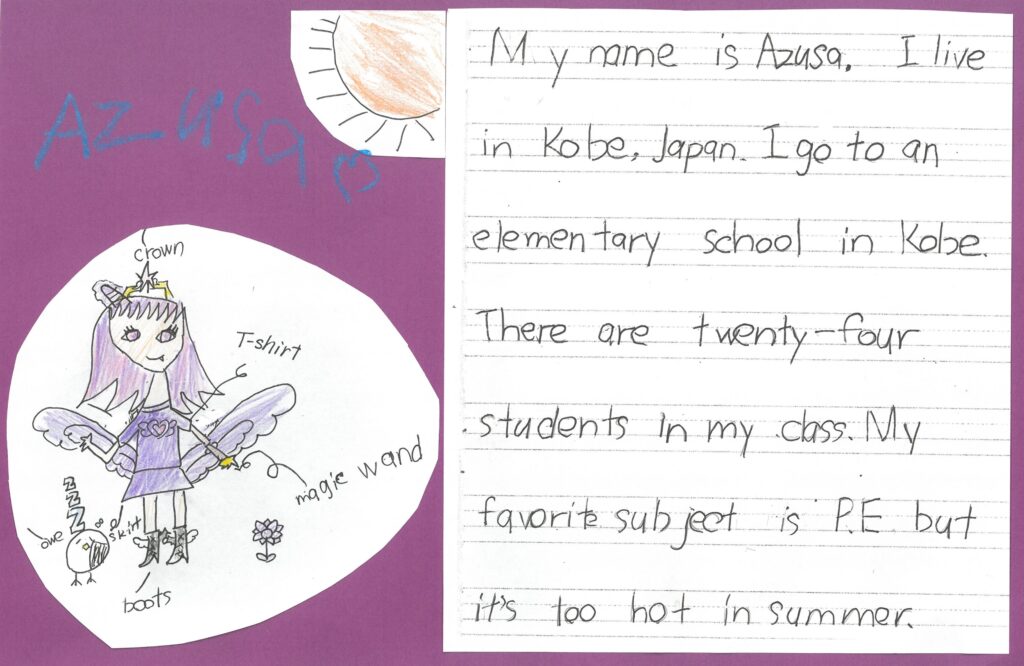 Azusa
crown
T-shirt
magic wand
zzz
skirt
boots
My name is Azusa. I live
in Kobe, Japan. I go to an
elementary school in Kobe.
There are twenty-four
students in my class. My
favorite subject is P.E but
it's too hot in summer.